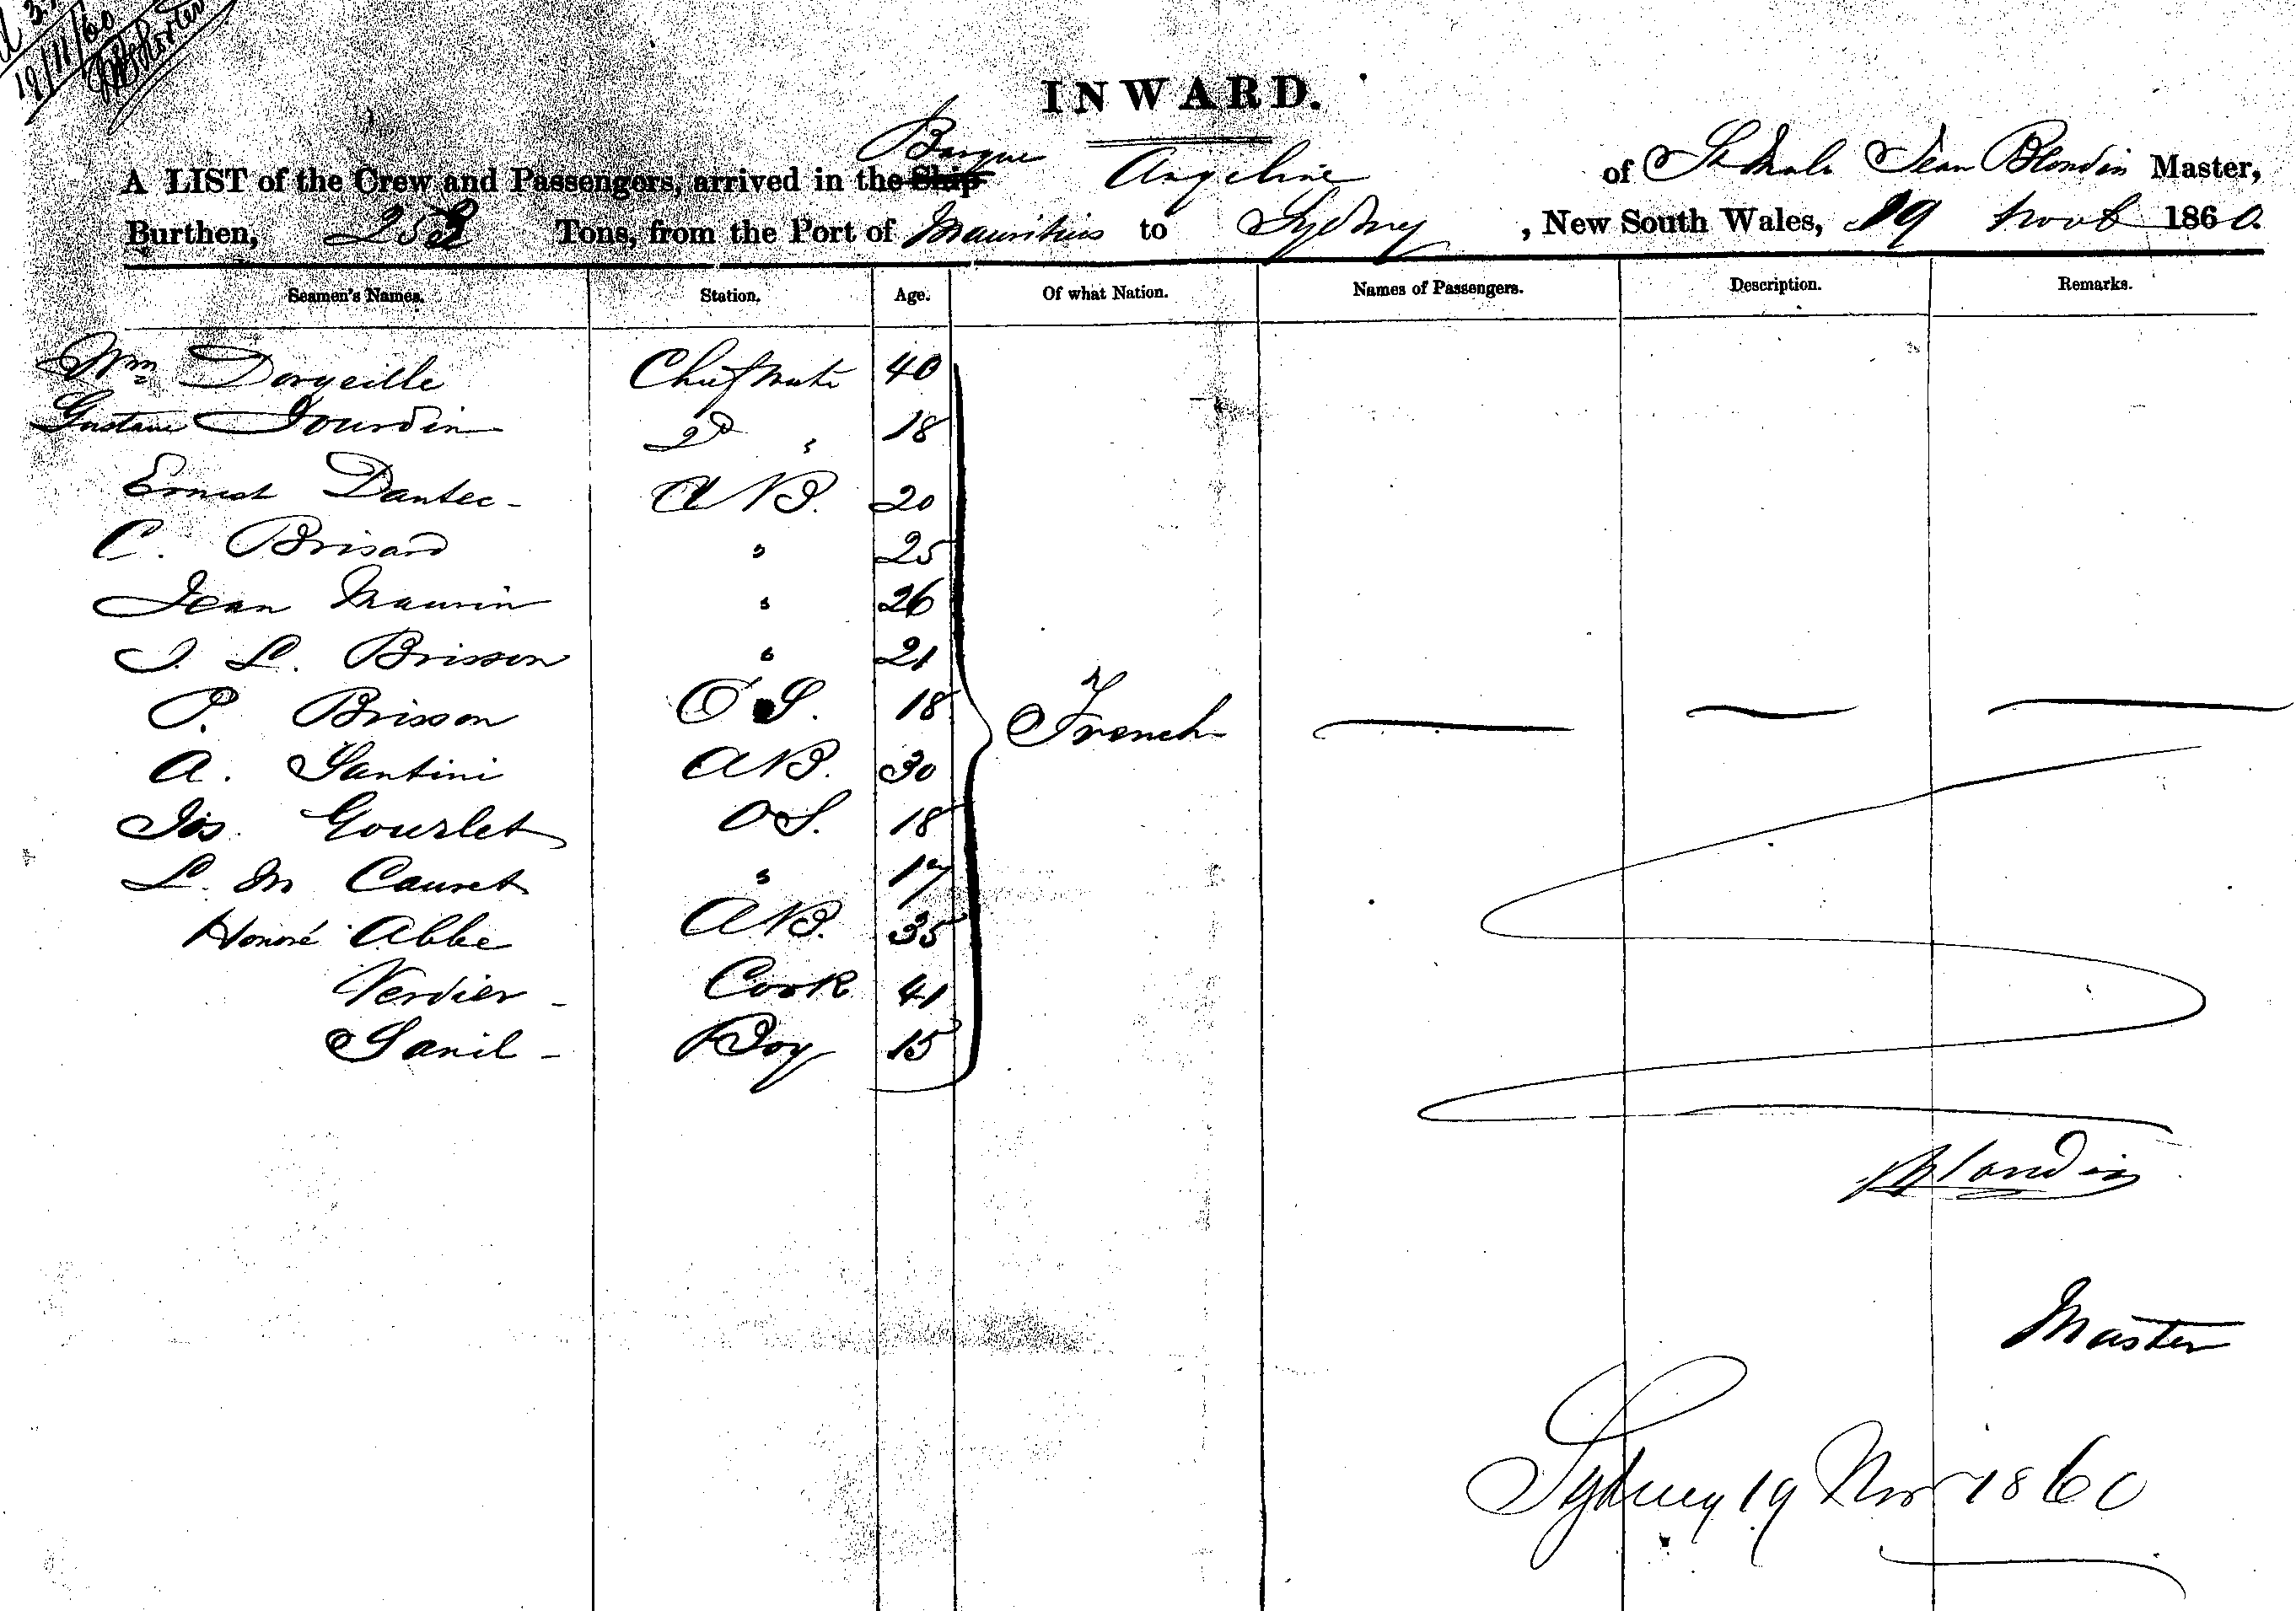 19/11/60
INWARD.
Barque
A LIST of the Crew and Passengers, arrived in the Ship Angeline of St Malo Jean Blondin Master,
Burthen, 252 Tons, from the Port of Mauritius to Sydney, New South Wales, 19 Novb 1860.
Seamen's Names. Station. Age. Of what Nation. Names of Passengers. Description. Remarks.
Wm Dorgeille Chief Mate 40
Gustave Jourdin 2d " 18
Ernest Dantec - A B. 20
C. Brisard " 25
Jean Maurin " 26
J. L. Brisson " 21
P. Brisson O S. 18 French
A. Santini A B. 30
Jos. Gourlet O S. 18
L. M Cauret " 17
Honoré Abbe A B. 35
Verdier - Cook 41
Sanil - Boy 15
Blondin
Master
Sydney 19 Nov 1860